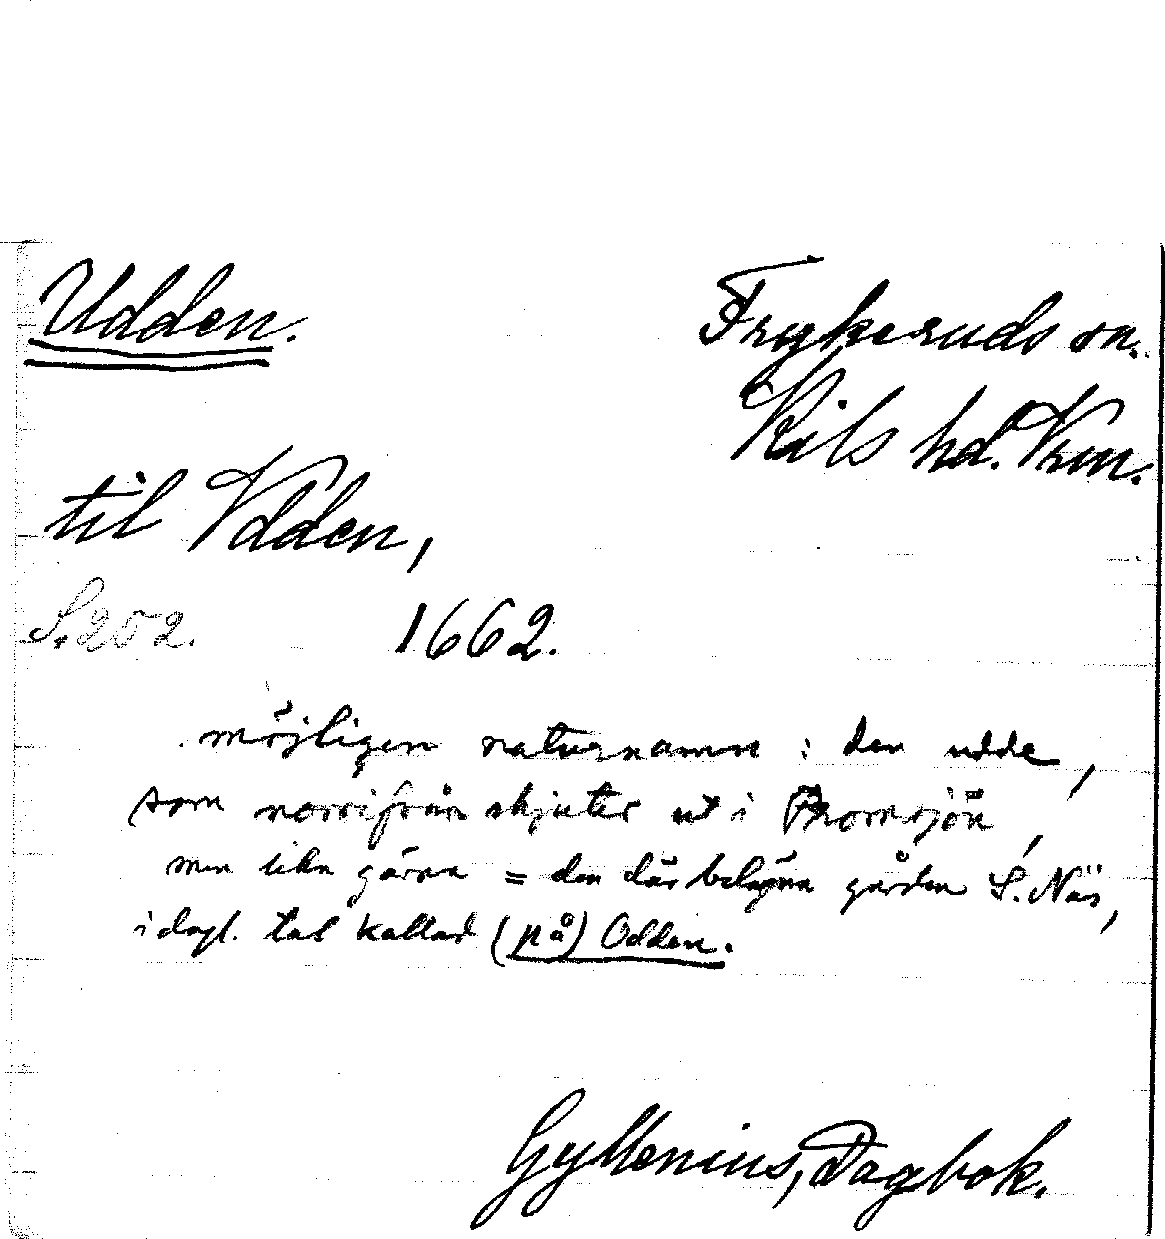 Udden.
Frykeruds sn.
Kils hd. Vrm.
til Vdden,
S. 202.
1662.
möjligen naturnamn : den udde,
som norrifrån skjuter ut i sjön,
men lika gärna = den där belägna gården S. Näs,
i dagl. tal kallad (på) Odden.
Gyllenius, Dagbok.